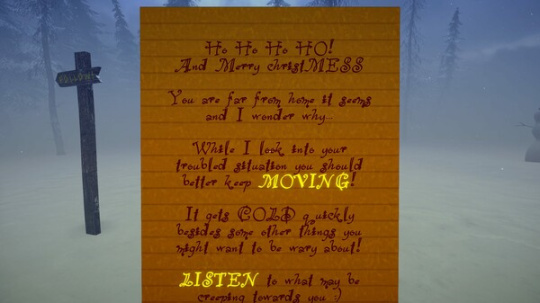 FOLLOW
Ho Ho Ho HO!
And Merry christMESS
You are far from home it seems
and I wonder why...
While I look into your
troubled situation you should
better keep MOVING!
It gets COLD quickly
besides some other things you
might want to be wary about!
LISTEN to what may be
creeping towards you